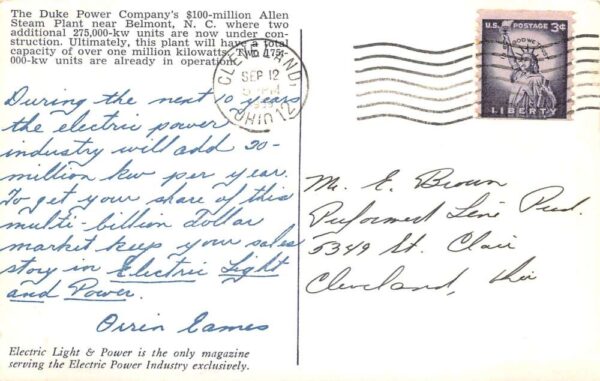 The Duke Power Company's $100-million Allen
Steam Plant near Belmont, N. C. where two
additional 275,000-kw units are now under con-
struction. Ultimately, this plant will have a total
capacity of over one million kilowatts. Two 175-
000-kw units are already in operation.
CLEVELAND
SEP 12
PM
OHIO
U.S. POSTAGE 3¢
IN GOD WE TRUST
LIBERTY
During the next 10 years
the electric power
industry will add 20-
million kw per year.
To get your share of this
multi-billion Dollar
market keep your sales
story in Electric Light
and Power.
Orrin Eames
Mr. E. Brown
Preformed Line Prod.
5349 St. Clair
Cleveland, Ohio
Electric Light & Power is the only magazine
serving the Electric Power Industry exclusively.